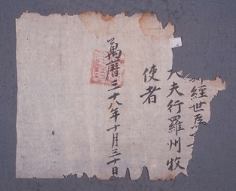 經世爲
大夫行羅州牧
使者
萬曆三十八年十月三十日